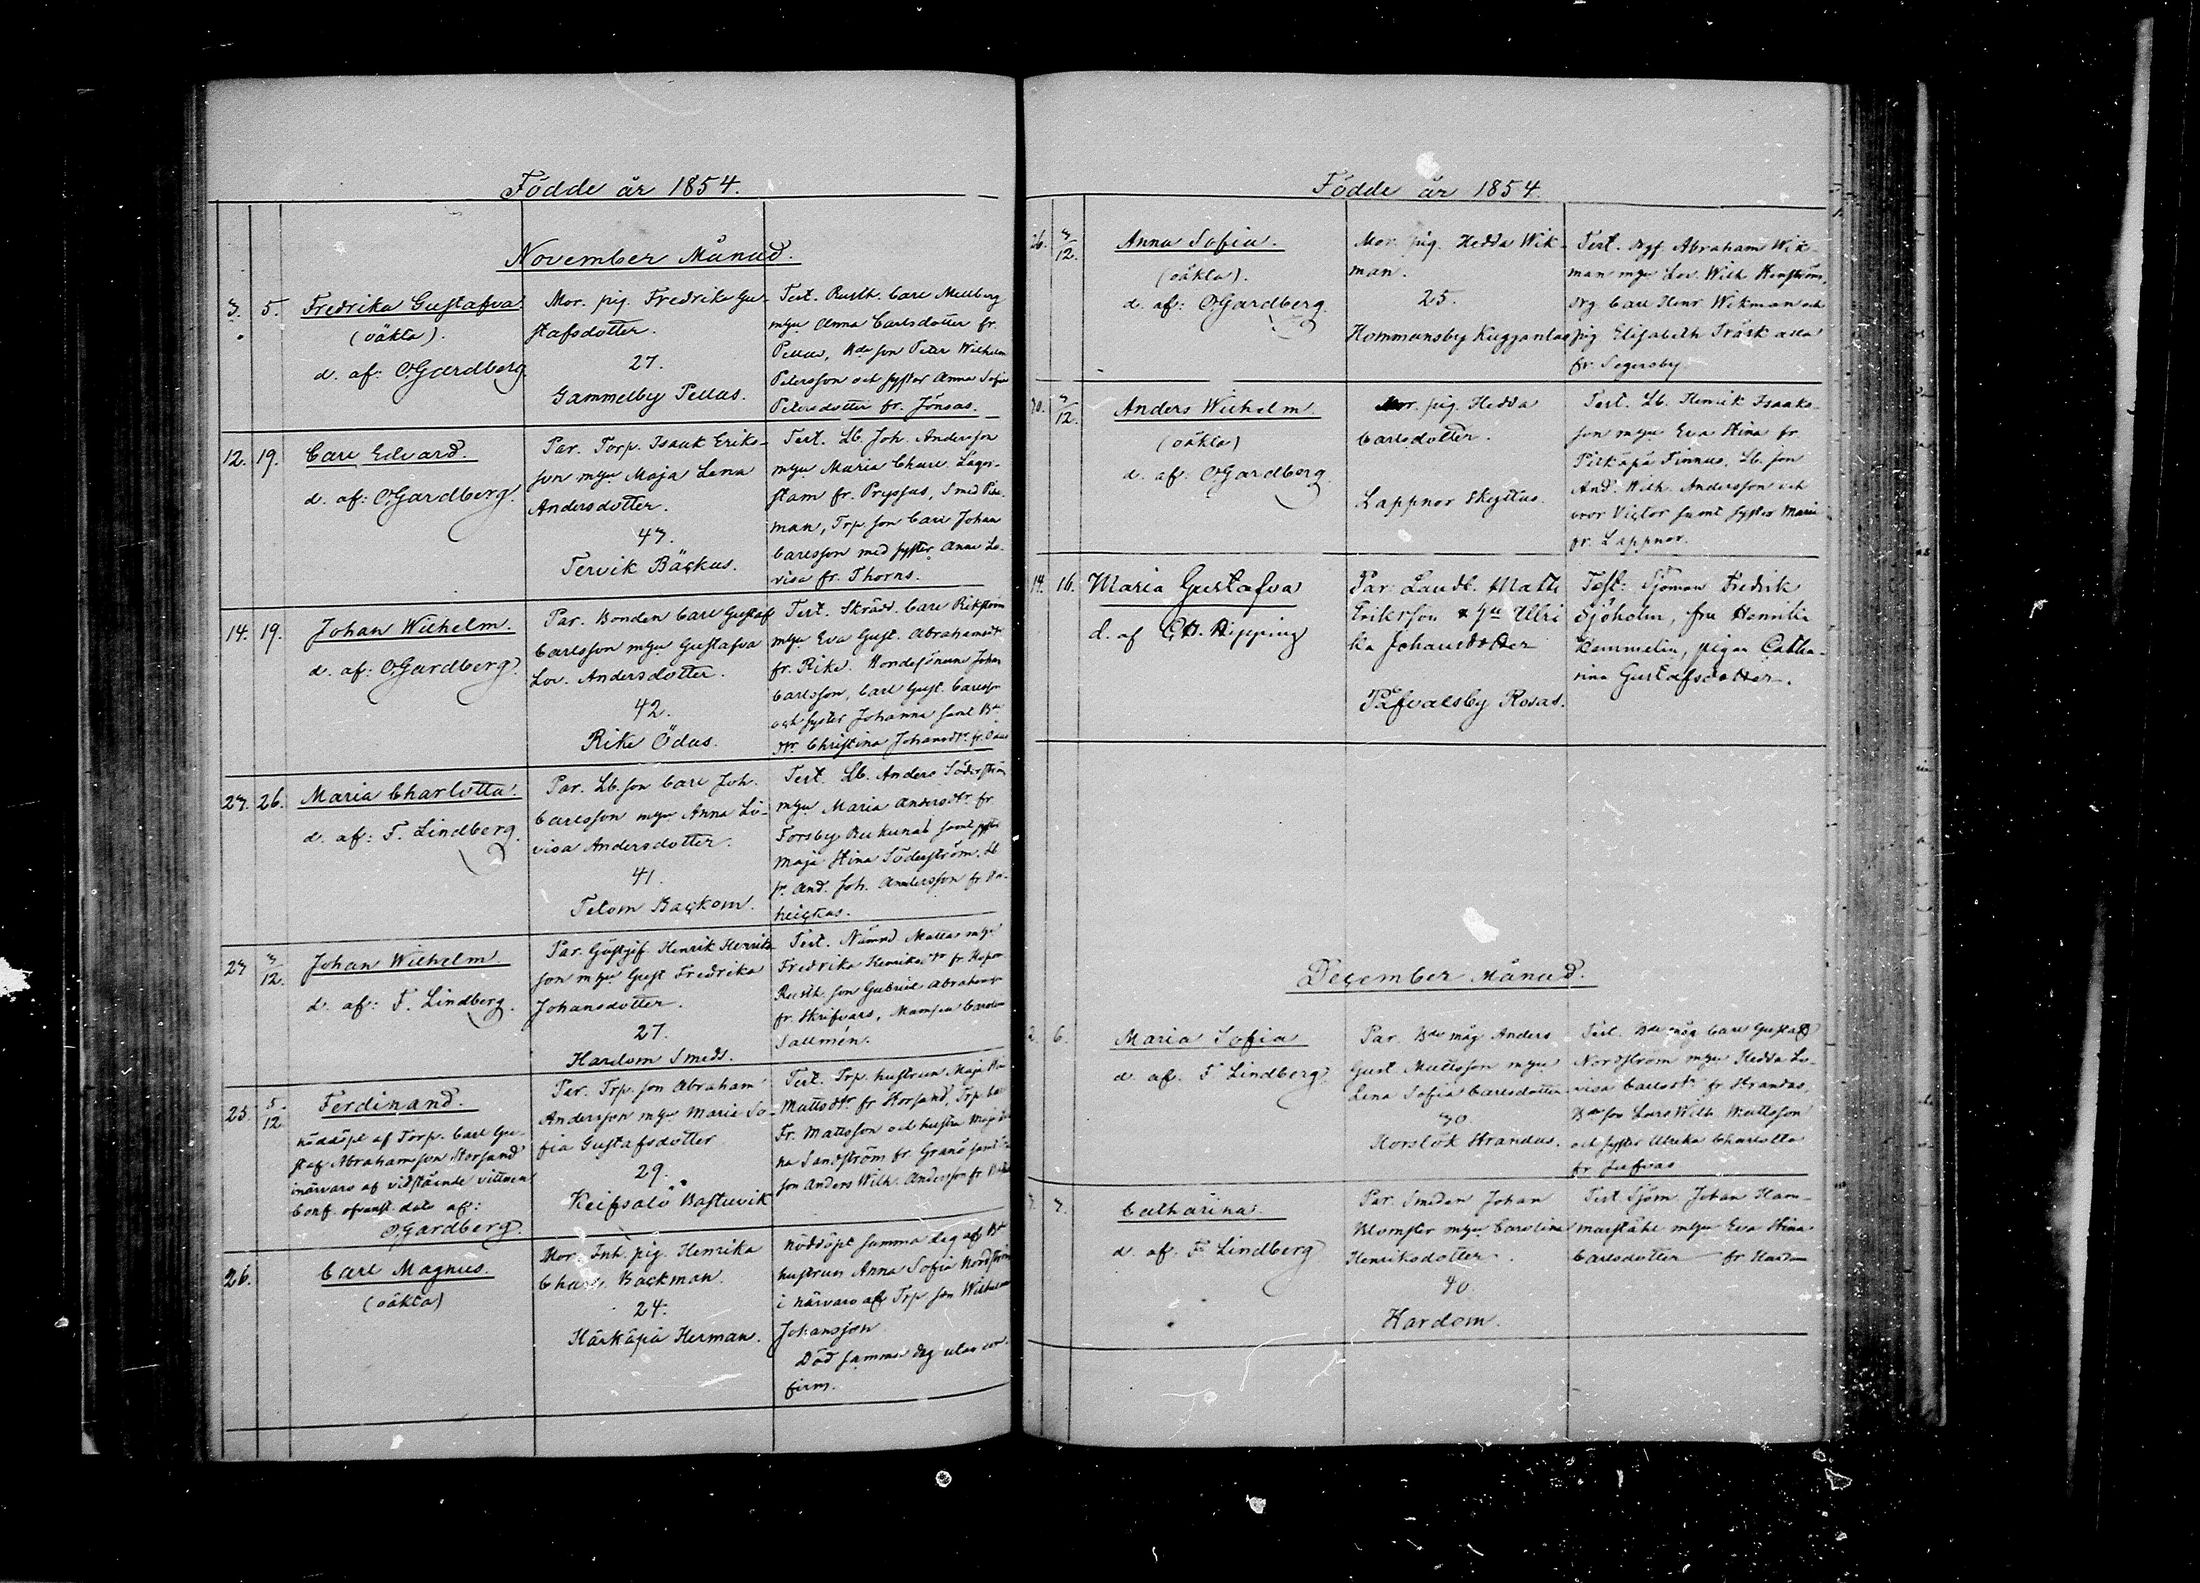 Födde år 1854.
November Månad.
3. 5. Fredrika Gustafva.
(oäkta).
d. af: O. Gardberg.
Mor. pig. Fredrika Gu-
stafsdotter.
27.
Gammelby Pellas.
Test. Rusth. Carl Mellberg
mhu Anna Carlsdotter fr.
Pellas, Bde son Peter Wilhelm
Petersson och syster Anna Sofia
Petersdotter fr. Jönsas.
12. 19. Carl Edvard.
d. af: O. Gardberg.
Par. Torp. Isaak Eriks-
son mhu Maja Lena
Andersdotter.
43.
Tervik Bäckas.
Test. Lb. Joh. Andersson
mhu Maria Charl. Lager-
stam fr. Pryssas, Smed
man, Trp. son Carl Johan
Carlsson med syster Anna Lo-
visa fr. Thorns.
14. 19. Johan Wilhelm.
d. af: O. Gardberg.
Par. Bonden Carl Gustaf
Carlsson mhu Gustafva
Lov. Andersdotter.
42.
Rike Ödas.
Test. Skrädd. Carl Rikström
mhu Eva Gust. Abrahamsdr
fr. Rike. Bondesönerne Johan
Carlsson, Carl Gust. Carlsson
och syster Johanna samt Bde
dtr. Christina Johansdtr. fr.
23. 26. Maria Charlotta.
d. af: F. Lindberg.
Par. Lb. son Carl Joh.
Carlsson mhu Anna Lo-
visa Andersdotter.
41.
Tetom Backom.
Test. Lb. Anders Söderström
mhu Maria Andersdtr. fr.
Forsby samt syster
Maja Stina Söderström. Lb
sn. And. Joh. Andersson fr.
23 3/12. Johan Wilhelm.
d. af: F. Lindberg.
Par. Gästgif. Henrik Henriks-
son mhu Gust. Fredrika
Johansdotter.
27.
Hardom Smeds.
Test. Nämnd. Mattas mhu
Fredrika Henriksdtr fr.
Rusth. son Gabriel Abrahams
fr. Skrifvars, Mamsell Carolina
Sallmén.
25. 5/12 Ferdinand.
nöddöpt af Torp. Carl Gu-
staf Abrahamsson Storsand
i närvaro af vidstående vittnen
Conf. ofvanst. dato af:
O. Gardberg.
Par. Trp. son Abraham
Andersson mhu Maria So-
fia Gustafsdotter
29.
Keifsalö Bastuvik
Test. Trp. hustrun Maja
Mattsdtr. fr. Storsand, Trp.
Fr. Mattsson och hustru Maja
na Sandström fr. Granö samt
son Anders Wilh. Andersson fr.
26. Carl Magnus.
(oäkta)
Mor. Inh. pig. Henrika
Charl. Backman.
24.
Härkäpä Herman.
nöddöpt samma dag af Bde
hustrun Anna Sofia Nordström
i närvaro af Trp. son Wilhelm
Johansson
Död samma dag utan con-
firm.
Födde år 1854.
26. 3/12. Anna Sofia.
(oäkta).
d. af: O. Gardberg.
Mor. pig. Hedda Wik-
man.
25.
Kommunsby Kuggantas
Test. drg. Abraham Wik-
man mhu Lov. Wilh.
drg. Carl Henr. Wikman och
pig. Elisabeth Träsk alla
fr. Segersby.
30. 3/12. Anders Wilhelm.
(oäkta)
d. af: O. Gardberg
Mor. pig. Hedda
Carlsdotter.
Lappnor Skyttas.
Test. Lb. Henrik Isaaks-
son mhu Eva Stina fr.
Pitkäpä Finnas, Lb. son
And. Wilh. Andersson och
bror Victor samt syster Maria
fr. Lappnor.
14. 16. Maria Gustafva
d. af Kipping
Par. Landb. Matts
Eriksson & Hu Ulri
ka Johansdotter
Påfvalsby Rosas.
Test. Sjöman Fredrik
Sjöholm, fru Hemilia
Hemmelin, pigan Catha-
rina Gustafsdotter.
December Månad.
2. 6. Maria Sofia
d. af. F. Lindberg.
Par. Bde måg Anders
Gust. Mattsson mhu
Lena Sofia Carlsdotter
30
Horslök Strandas.
Test. Bde måg Carl Gustaf
Nordström mhu Hedda Lo-
visa Carlsdtr. fr. Strandas,
Bde son Lars Wilh. Mattsson
och syster Ulrika Charlotta
fr.
3. 7. Catharina.
d. af. F. Lindberg
Par. Smeden Johan
Blomster mhu Carolina
Henriksdotter.
40.
Hardom.
Test. Sjöm. Johan Ham-
marståhl mhu Eva Stina
Carlsdotter fr. Hardom